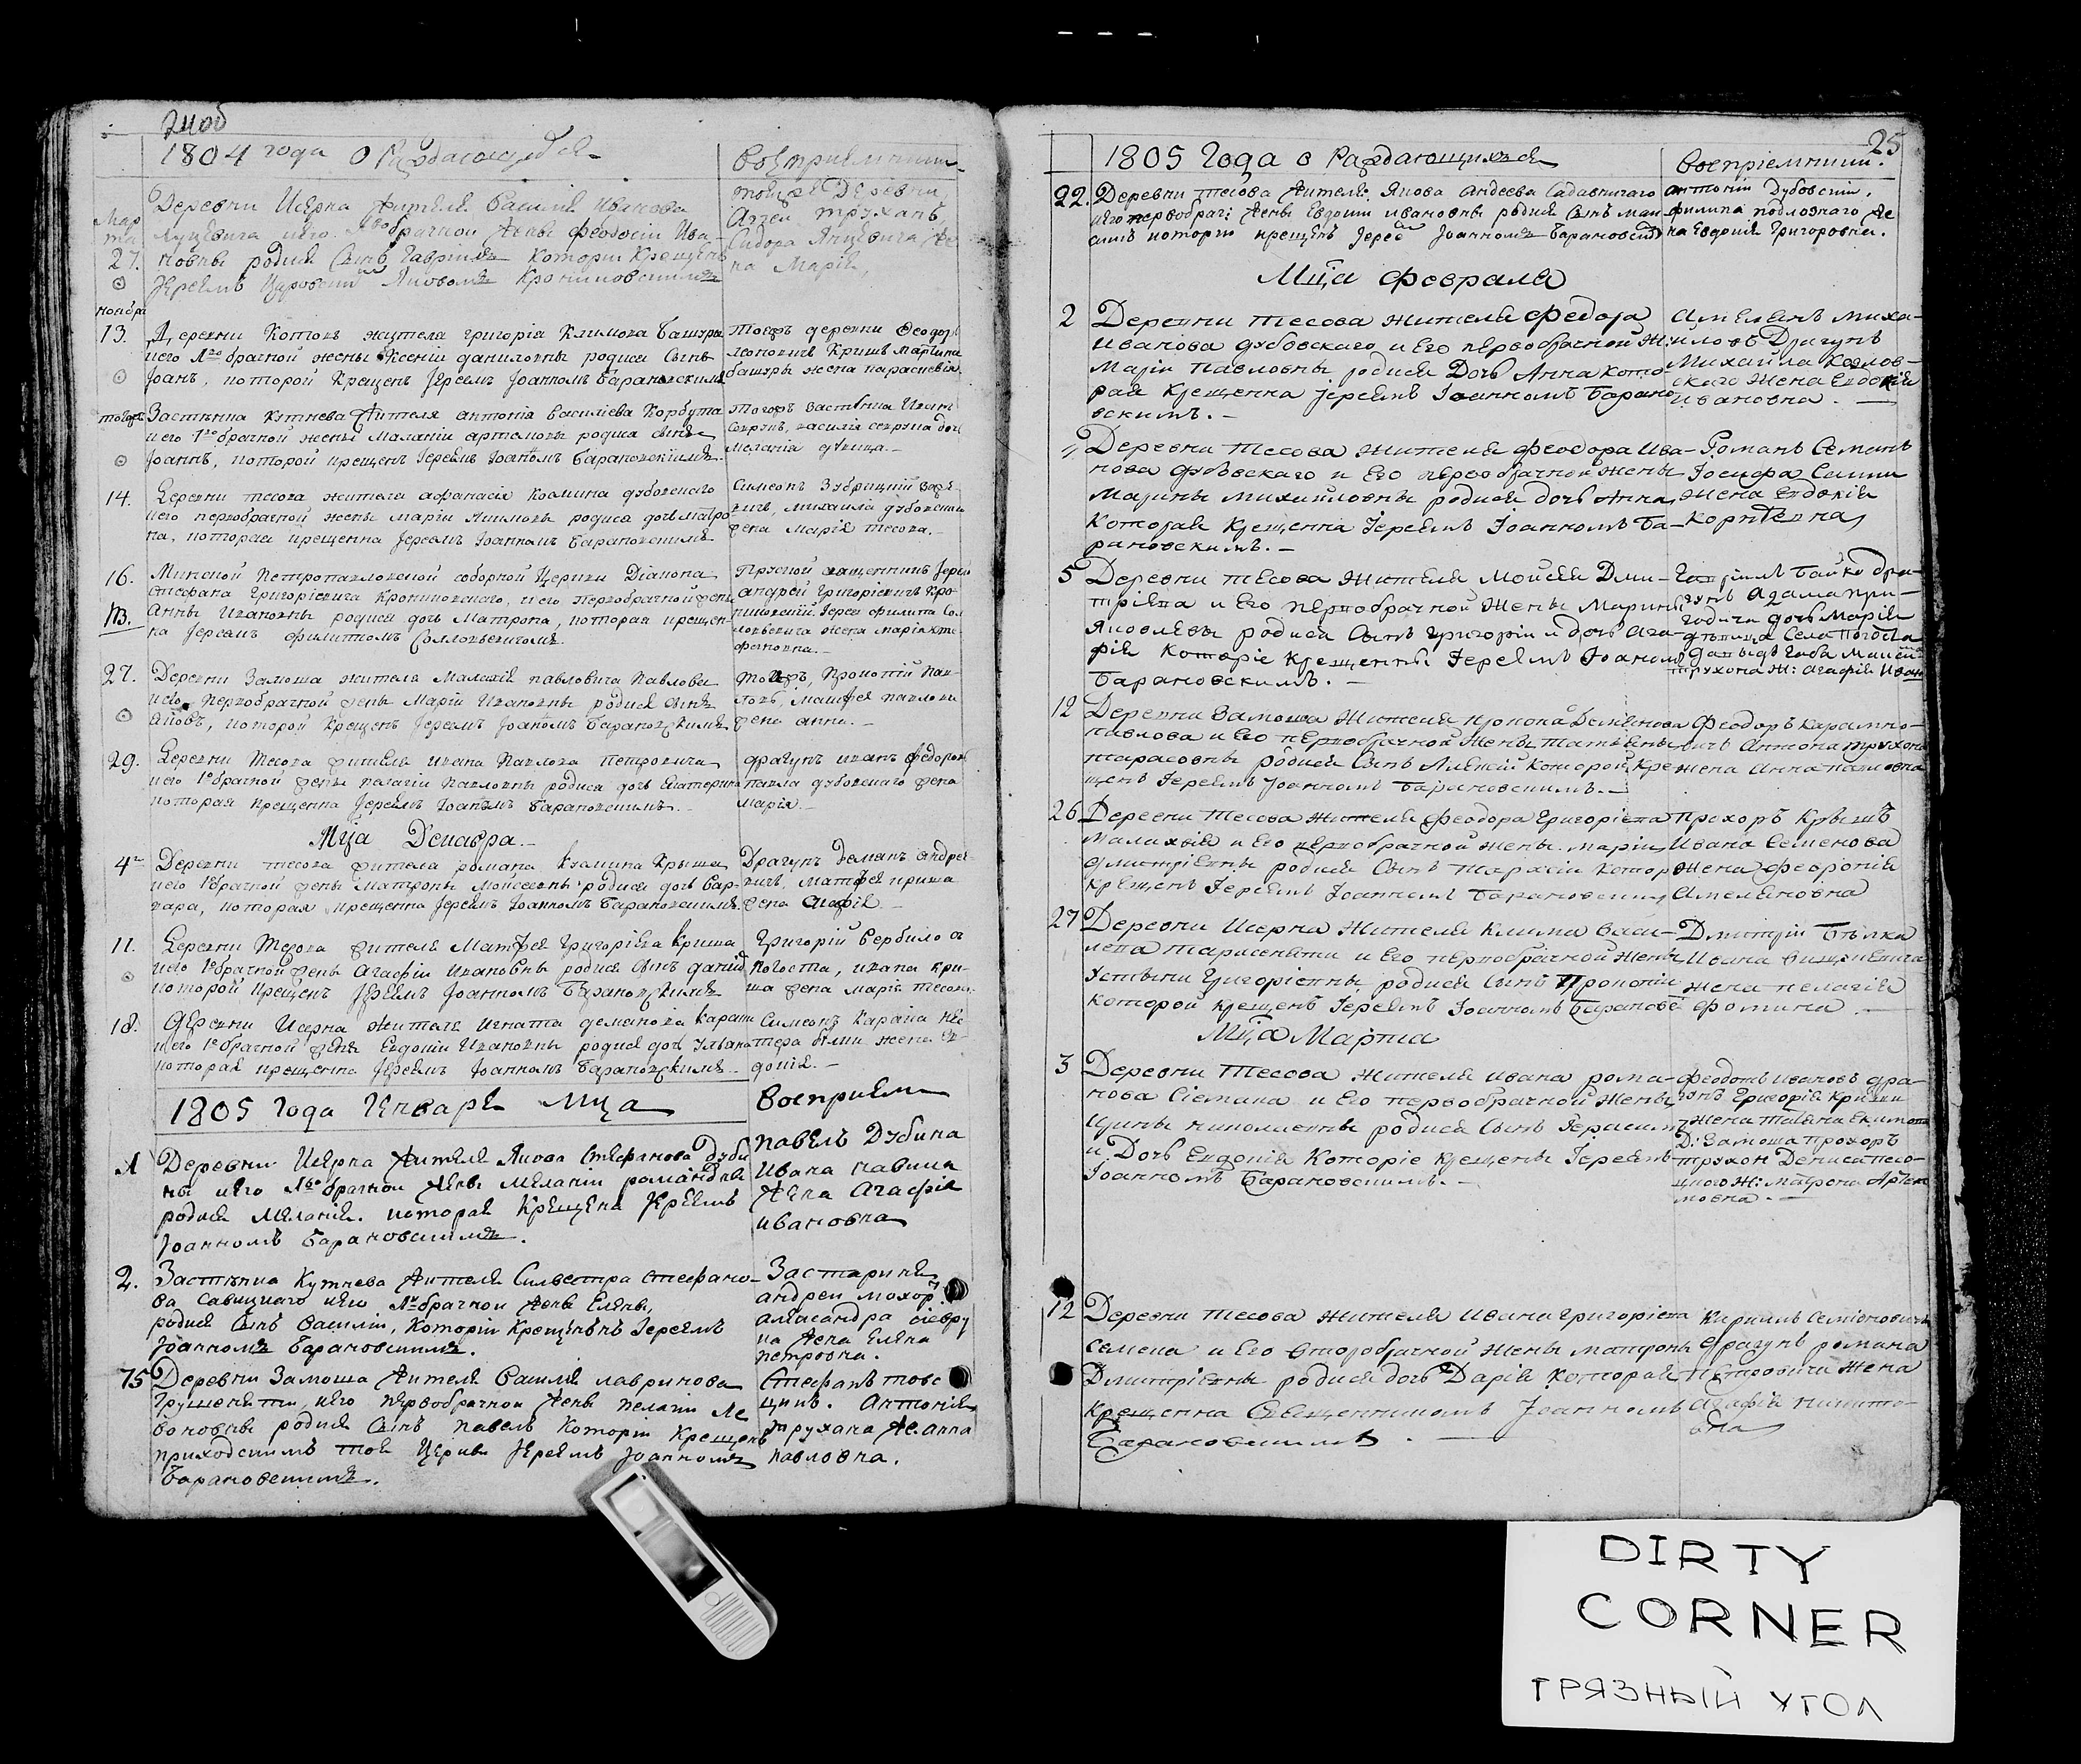 24об
1804 года О Раждающихся
воспріемники
Мар
та
27.
Деревни Исерна Жителя Василія Иванова
его 1во брачной жены Феодосіи Ива-
новны родися Сынъ Гавріилъ Которіи Крещенъ
Іереемъ Яковомъ Крониковскимъ
тоеже Деревни
Сидора
на Марія,
ноября
13.
Деревни Котовъ жителя Григоріа Климова Башуры
и его 1во брачной жены Ксеніи Даниловны родися Сынъ
Іоанъ, которой Крещенъ Іереемъ Іоанномъ Барановскимъ
тоежъ деревни Феодоръ
Мартина
Башуры жена Параскевія.
тогоже
Застѣнка Кутнева Жителя Антонія Василіева Корбута
и его 1во брачной жены Маланіи Артемовы родися сынъ
Іоаннъ, которой крещенъ Іереемъ Іоанномъ Барановскимъ.
тогожъ застѣнка Иванъ
Меланія дѣвица.
14.
Деревни Тесова жителя Афанасія Козмина Дубовскаго
и его первобрачной жены Маріи Якимовы родися дочь Матро-
на, которая крещенна Іереемъ Іоанномъ Барановскимъ.
Симеонъ Зубрицкій
Михаила Дубовскаго
жена Марія Тесова.
16.
Минской Петропавловской соборной Церкви Діакона
Стефана Григоріевича Крониковскаго, и его первобрачной жены
Анны Ивановны родися дочь Матрона, которая крещен-
на Іереемъ Филиппомъ Соллоневичомъ.
NB.
священникъ Іерей
Андрей Григоріевичъ Кро-
никовскій Іерея Филипа Сол-
лоневича жена Марія
27.
Деревни Замоша жителя Малахія Павловича Павлова
и его Первобрачной жены Маріи Ивановны родися сынъ
Яковъ, которой Крещенъ Іереемъ Іоаномъ Барановскимъ
тойжъ, Прокопій Пав-
ловъ, Матфея Павлова
жена Анна.
29.
Деревни Тесова жителя Ивана Павлова Петровича
и его 1о брачной жены Пелагіи Павловны родися дочь Екатерина
которая крещенна Іереемъ Іоаномъ Барановскимъ.
драгунъ Иванъ Федоровъ
Павла Дубовскаго жена
Марія.
Мца Декабра.
4
Деревни Тесова жителя Романа Кузмина Крыша
и его 1о брачной жены Матроны Мойсеевны родися дочь Вар-
вара, которая крещенна Іереемъ Іоанномъ Барановскимъ.
Драгунъ Деманъ Андрее-
вичъ, Матфея Криша
жена Агафія
11.
Деревни Тесова жителя Матфея Григоріева Криша
и его 1о брачной жены Агафіи Ивановны родися сынъ Даніилъ
которой Крещенъ Іереемъ Іоанномъ Барановскимъ
Григорій Вербило съ
Погоста, Ивана Кри-
ша жена Марія Тесова.
18.
Деревни Исерна жителя Игната Деманова Карани
и его 1о брачной жены Евдокіи Ивановны родися дочь Уліана
которая крещенна Іереемъ Іоанномъ Барановскимъ
Симеонъ Карана
жена Ев-
докія.
1805 Года Генваря Мца
Воспріем
1
Деревни Исерна Жителя Якова Стефанова Дуби
ны и его 1во брачной жены Меланіи Романовны
родися Меланія. которая Крещена Іереемъ
Іоанномъ Барановскимъ.
Павелъ Дубина
Ивана Савица
Жена Агафія
Ивановна
2.
Застѣнка Кутнева Жителя Силвестра Стефано-
ва Савицкаго и его 1во брачной жены Елены,
родися Сынъ Василіи, Которіи Крещенъ Іереемъ
Іоанномъ Барановскимъ.
андреи мохор
жена Елена
петровна.
15
Деревни Замоша Жителя Василія Лавринова
Грушенти, и его первобрачной жены Пелагіи Ле
воновны родися Сынъ Павелъ Которіи Крещенъ
приходскимъ тоя Церкви Іереемъ Іоанномъ
Барановскимъ.
Антонія
Трухана Же. анна
Павловна.
25
1805 Года о Раждающихся
воспріемники.
22.
Деревни Тесова Жителя Якова Андеева Садавничаго
и его первобрач: Жены Евдокіи Ивановны родися Сынъ Мак-
симъ которіи крещенъ Іерео Іоанномъ Барановски
антоніи Дубовскіи.
филипа подлознаго Же
на Евдокія Григоровна.
Мца Февраля
2
Деревни Тесова Жителя Федора
Иванова Дубовскаго и Его первобрачной Ж:
Маріи Павловны родися Дочь Анна Кото-
рая Крещенна Іереемъ Іоанномъ Барано-
вскимъ.
Амелянъ Миха-
иловъ Драгунъ
Михайла Козлов-
скаго Жена Евдокія
Ивановна.
"
Деревни Тесова Жителя Феодора Ива-
нова Дубовскаго и Его первобрачной жены
Марины Михайловны родися дочь Анна,
Которая Крещенна Іереемъ Іоанномъ Ба-
рановскимъ.
Романъ Семакъ
Іосифа Семки
Жена Евдокія
Корнѣевна
5
Деревни Тесова Жителя Мойсея Дми-
тріева и Его первобрачной Жены Марины
Яковлевы родися Сынъ Григоріи и дочь Ага-
фія Которіе Крещенны Іереемъ Іоаномъ
Барановскимъ.
Гавріилъ Байко дра-
гунъ Адама При-
годича дочь Марія
дѣвица Села Погоста
Трухона Ж: Агафія Иван
12
Деревни Замоша Жителя Прокопа Демянова
Павлова и Его первобрачной Жены Татьяны
Тарасовны родися Сынъ Алексій Которой Кре-
щенъ Іереемъ Іоанномъ Барановскимъ.
Феодоръ Карамно-
вичъ Антона Трухона
жена Анна Павловна
26
Деревни Тесова Жителя Феодора Григоріева
Малахвія и Его первобрачной жены Маріи
Дмитріевны родися Сынъ Тарасій Котор
Крещенъ Іереемъ Іоанномъ Барановским
Прохоръ Крышъ
Ивана Семенова
Жена Февронія
Амеляновна
27
Деревни Исерна Жителя Клима Васи-
лева Тарасевича и Его первобрачной Жены
Устины Григоріевны родися Сынъ Прокопіи
которой крещенъ Іереемъ Іоанномъ Баранов
Дмитріи Бѣлка
Ивана
жена Пелагія
Фомина.
Мца Марта
3
Деревни Тесова Жителя Ивана Рома-
нова Сіемака и Его первобрачной Жены
Ирины Николаевны родися Сынъ Герасим
и Дочь Евдокія Которіе Крещены Іереемъ
Іоанномъ Барановскимъ.
Феодотъ Ивановъ дра-
гунъ Григорія Кришки
Жена Татьяна Екимовна
Д: Замоша Прохоръ
Трухон Дениса
Ж: Матрона Артем
мовна.
12
Деревни Тесова Жителя Ивана Григоріева
Семена и Его второбрачной Жены Матроны
Дмитріевны родися дочь Дарія Которая
Крещенна Священникомъ Іоанномъ
Барановскимъ.
Кирилъ Семіоновичъ
драгунъ Романа
Петровича Жена
Агафія Никито-
вна
DIRTY
CORNER
ГРЯЗНЫЙ УГОЛ